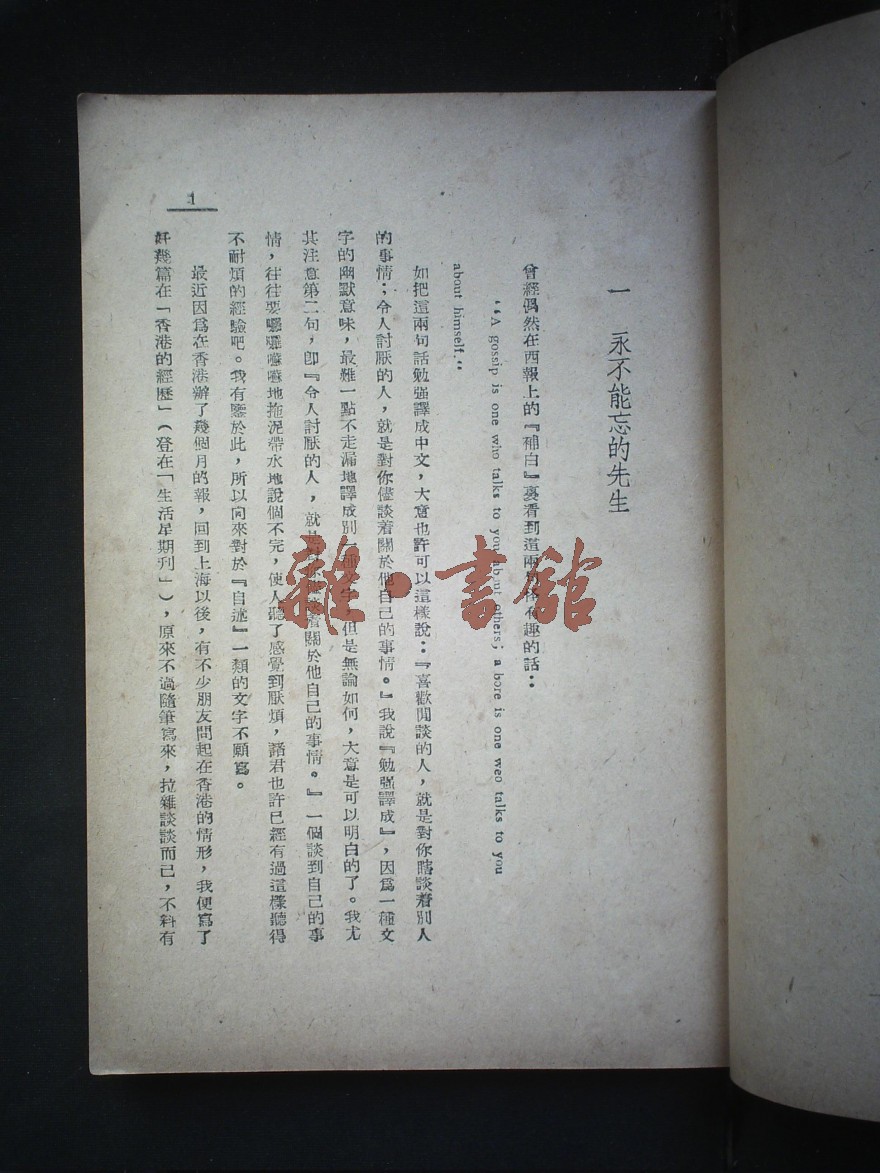 一　永不能忘的先生
曾經偶然在西報上的『補白』裏看到這兩句怪有趣的話：
“A gossip is one who talks to you about others; a bore is one weo talks to you
about himself.“
如把這兩句話勉强譯成中文，大意也許可以這樣說：『喜歡閒談的人，就是對你瞎談着別人
的事情；令人討厭的人，就是對你儘談着關於他自己的事情。』我說『勉强譯成』，因爲一種文
字的幽默意味，最難一點不走漏地譯成別一種文字，但是無論如何，大意是可以明白的了。我尤
其注意第二句，卽『令人討厭的人，就是對你儘談着關於他自己的事情。』一個談到自己的事
情，往往要囉囉嗦嗦地拖泥帶水地說個不完，使人聽了感覺到厭煩，諸君也許已經有過這樣聽得
不耐煩的經驗吧。我有鑒於此，所以向來對於『自述』一類的文字不願寫。
最近因爲在香港辦了幾個月的報，回到上海以後，有不少朋友問起在香港的情形，我便寫了
好幾篇在「香港的經歷」（登在「生活星期刊」），原來不過隨筆寫來，拉雜談談而已，不料有
1
雜·書館